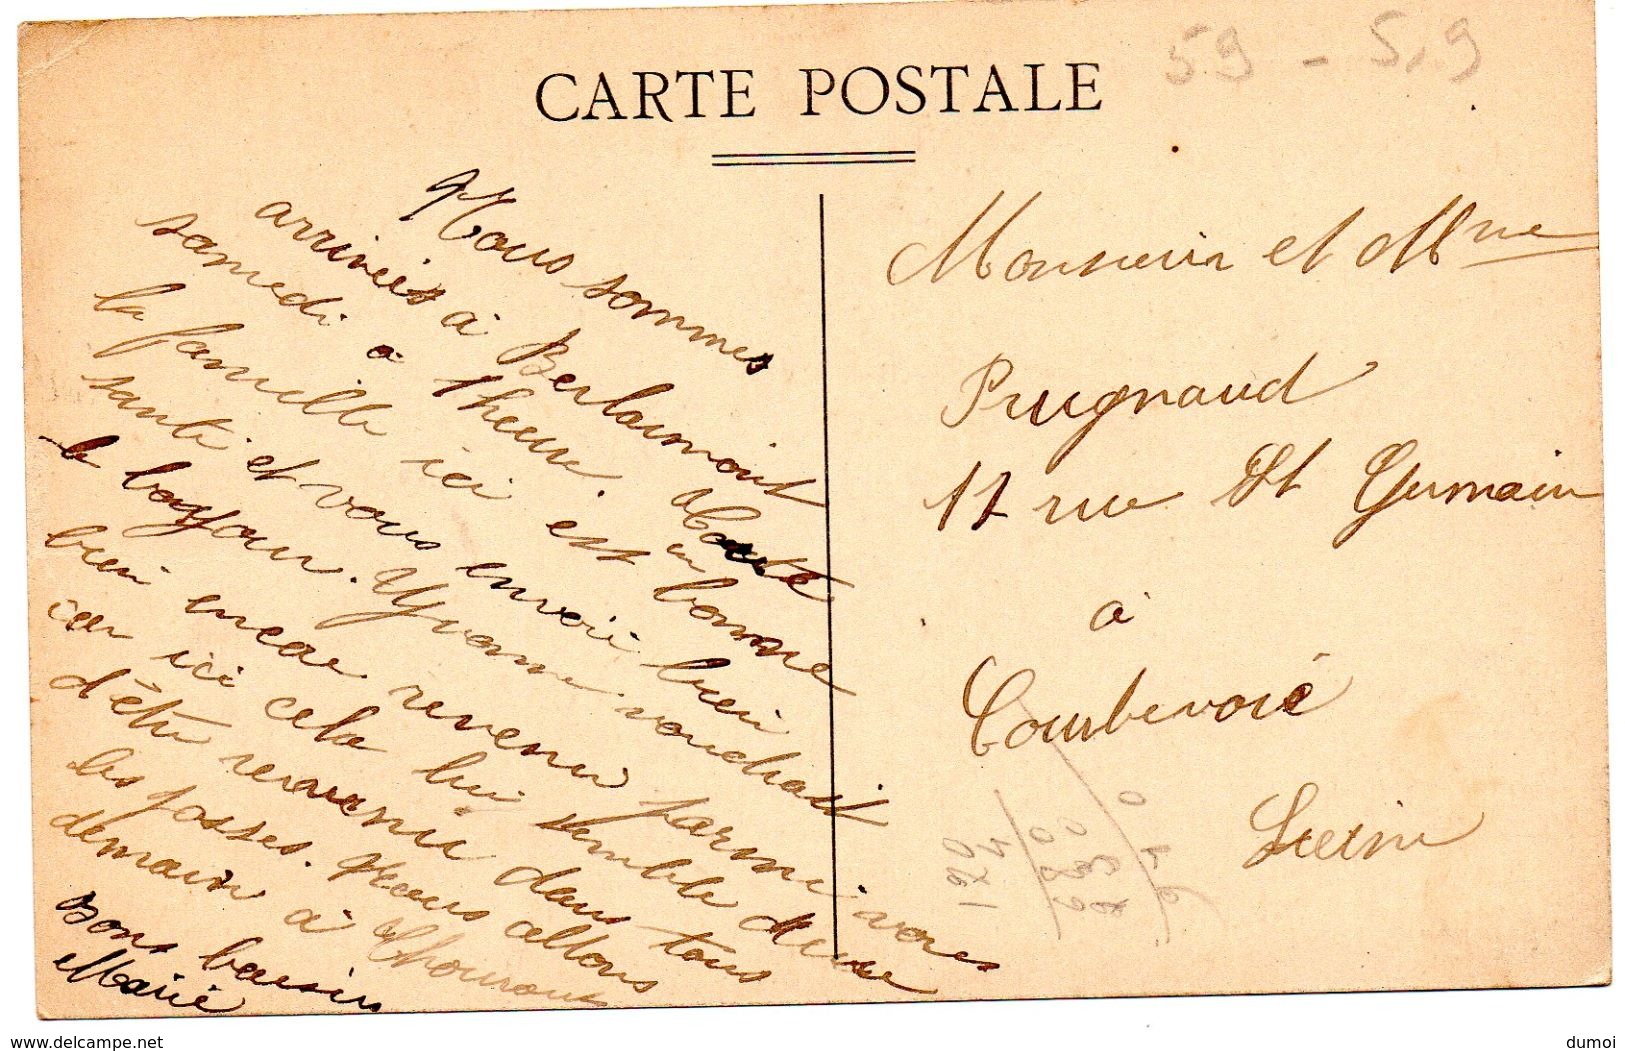 59 - 5,9
CARTE POSTALE
Nous sommes
arrivées à Berlaimont
samedi à 1 heure. Toute
la famille ici est en bonne
santé et vous envoie bien
le bonjour. Yvonne voudrait
bien encore revenir parmi vous
car ici cela lui semble dure
d'être revenue dans tous
les fosses. Nous allons
demain à
bons baisers
Marie
Monsieur et Mme
Prugnaud
17 rue St Germain
à
Courbevoie
Seine
www.delcampe.net
dumoi